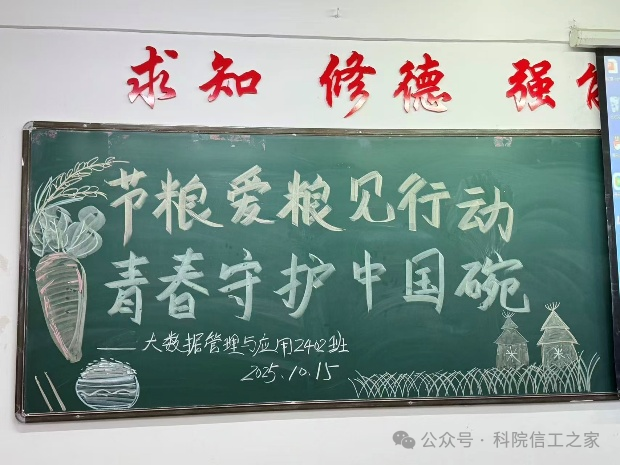 求知 修德 强
节粮爱粮见行动
青春守护中国碗
——大数据管理与应用2402班
2025.10.15
米 米
公众号·科院信工之家